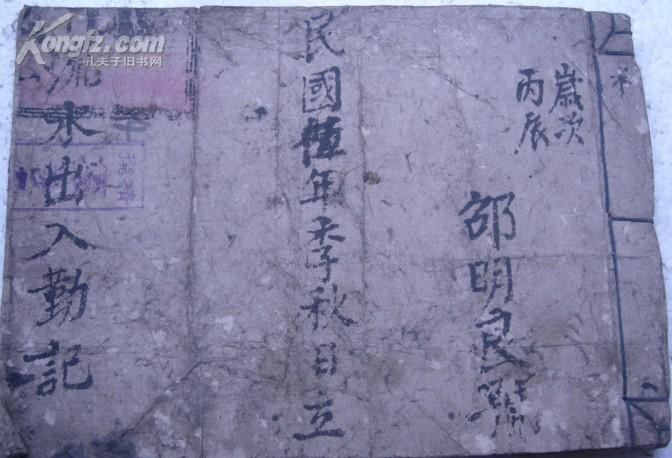 歲次
丙辰
邵明良
民國伍年季秋日立
流水出入勤記
Kongfz.com
孔夫子旧书网